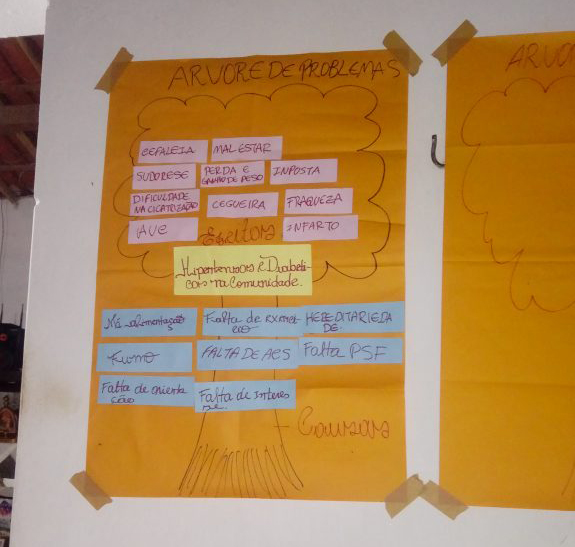 ARVORE DE PROBLEMAS
ARVOR
CEFALEIA
MAL ESTAR
SUDORESE
PERDA E
GANHO DE PESO
INPOSTA
DIFICULDADE
NA CICATRIZAÇÃO
CEGUEIRA
FRAQUEZA
AVE
INFARTO
Hipertensos e Diabeti-
cos na Comunidade.
Má alimentação
Falta de exercí
cio
HEREDITARIEDA
DE.
Fumo
FALTA DE ACS
Falta PSF
Falta de orienta
ção
Falta de Interes
se.
Causas